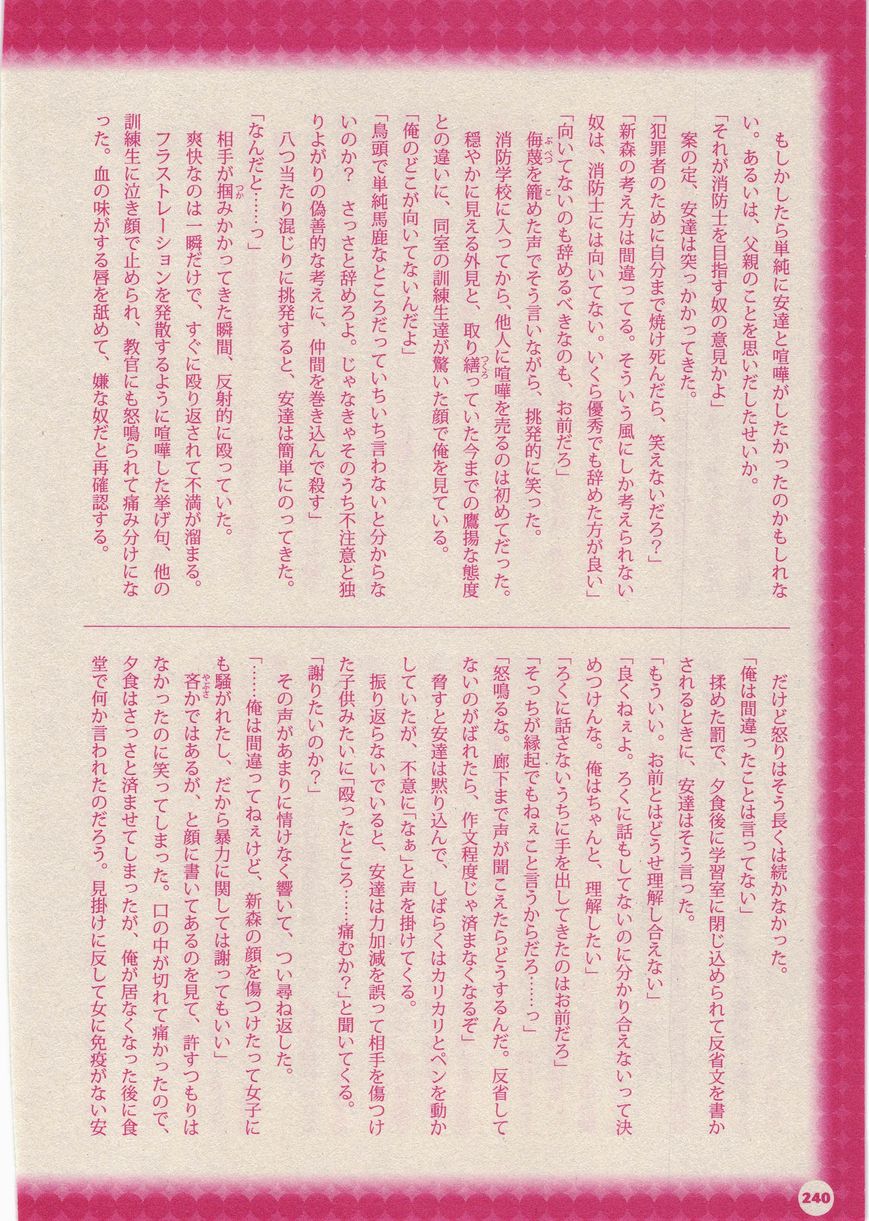 もしかしたら単純に安達と喧嘩がしたかったのかもしれな
い。あるいは、父親のことを思いだしたせいか。
「それが消防士を目指す奴の意見かよ」
案の定、安達は突っかかってきた。
「犯罪者のために自分まで焼け死んだら、笑えないだろ？」
「新森の考え方は間違ってる。そういう風にしか考えられない
奴は、消防士には向いてない。いくら優秀でも辞めた方が良い」
「向いてないのも辞めるべきなのも、お前だろ」
侮蔑を籠めた声でそう言いながら、挑発的に笑った。
消防学校に入ってから、他人に喧嘩を売るのは初めてだった。
穏やかに見える外見と、取り繕っていた今までの鷹揚な態度
との違いに、同室の訓練生達が驚いた顔で俺を見ている。
「俺のどこが向いてないんだよ」
「鳥頭で単純馬鹿なところだっていちいち言わないと分からな
いのか？　さっさと辞めろよ。じゃなきゃそのうち不注意と独
りよがりの偽善的な考えに、仲間を巻き込んで殺す」
八つ当たり混じりに挑発すると、安達は簡単にのってきた。
「なんだと……っ」
相手が掴みかかってきた瞬間、反射的に殴っていた。
爽快なのは一瞬だけで、すぐに殴り返されて不満が溜まる。
フラストレーションを発散するように喧嘩した挙げ句、他の
訓練生に泣き顔で止められ、教官にも怒鳴られて痛み分けにな
った。血の味がする唇を舐めて、嫌な奴だと再確認する。
だけど怒りはそう長くは続かなかった。
「俺は間違ったことは言ってない」
揉めた罰で、夕食後に学習室に閉じ込められて反省文を書か
されるときに、安達はそう言った。
「もういい。お前とはどうせ理解し合えない」
「良くねぇよ。ろくに話もしてないのに分かり合えないって決
めつけんな。俺はちゃんと、理解したい」
「ろくに話さないうちに手を出してきたのはお前だろ」
「そっちが縁起でもねぇこと言うからだろ……っ」
「怒鳴るな。廊下まで声が聞こえたらどうするんだ。反省して
ないのがばれたら、作文程度じゃ済まなくなるぞ」
脅すと安達は黙り込んで、しばらくはカリカリとペンを動か
していたが、不意に「なぁ」と声を掛けてくる。
振り返らないでいると、安達は力加減を誤って相手を傷つけ
た子供みたいに「殴ったところ……痛むか？」と聞いてくる。
「謝りたいのか？」
その声があまりに情けなく響いて、つい尋ね返した。
「……俺は間違ってねぇけど、新森の顔を傷つけたって女子に
も騒がれたし、だから暴力に関しては謝ってもいい」
吝かではあるが、と顔に書いてあるのを見て、許すつもりは
なかったのに笑ってしまった。口の中が切れて痛かったので、
夕食はさっさと済ませてしまったが、俺が居なくなった後に食
堂で何か言われたのだろう。見掛けに反して女に免疫がない安
240